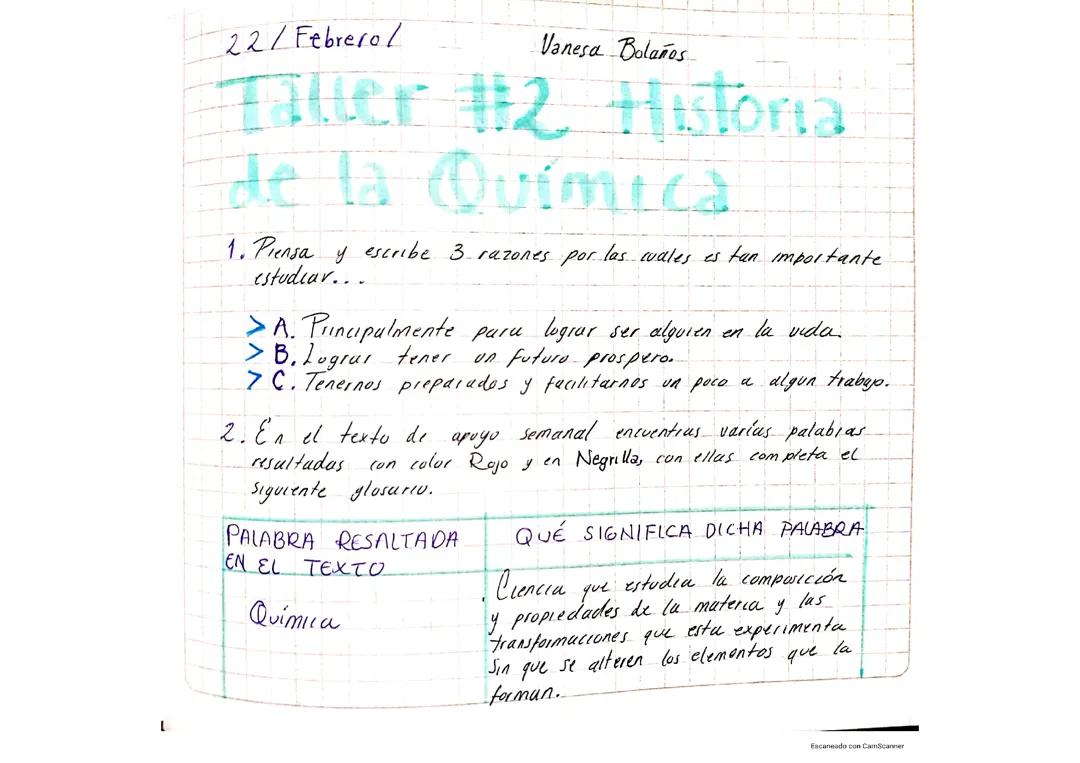 22/Febrero/
Vanesa Bolaños
Taller #2 Historia
de la Química
1. Piensa y escribe 3 razones por las cuales es tan importante
estudiar...
> A. Principalmente para lograr ser alguien en la vida.
> B. Lograr tener un futuro prospero.
> C. Tenernos preparados y facilitarnos un poco a algun trabajo.
2. En el texto de apoyo semanal encuentras varias palabras
resaltadas con color Rojo y en Negrilla, con ellas completa el
siguiente glosario.
PALABRA RESALTADA
EN EL TEXTO
QUÉ SIGNIFICA DICHA PALABRA
Química
Ciencia que estudia la composición
y propiedades de la materia y las
transformaciones que esta experimenta
sin que se alteren los elementos que la
forman.
Escaneado con CamScanner